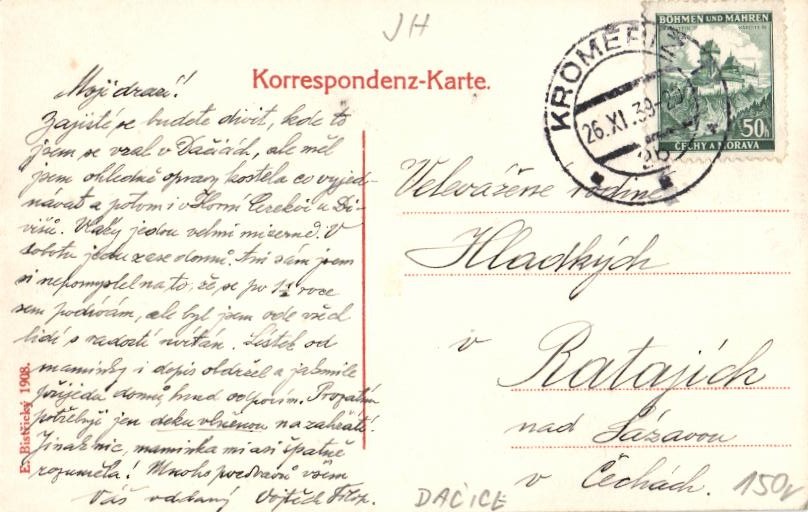 JH
BÖHMEN UND MÄHREN
50h
ČECHY A MORAVA
26.XI.39
Korrespondenz-Karte.
Moji drazí!
Zajisté se budete divit, kde to
jsem se vzal v Dačicích, ale měl
jsem ohledně opravy kostela co vyjed-
návat a potom i v Horní Cerekvi u Di-
višů. Vlaky jedou velmi mizerně. V
sobotu jedu zase domů. Ani sám jsem
si nepomyslel na to, že se po 1½ roce
sem podívám, ale byl jsem ode všech
lidí s radostí uvítán. Lístek od
maminky i dopis obdržel a jakmile
přijedu domů hned odpovím. Prozatím
potřebuji jen deku vlněnou na zahřátí.
Jinak nic, maminka mi asi špatně
rozuměla! Mnoho pozdravů všem
Váš oddaný Vojtěch
Velevážené rodině
Hladkých
v
Ratajích
nad Sázavou
v Čechách.
E. Bistřický 1908.
DAČICE
150,-